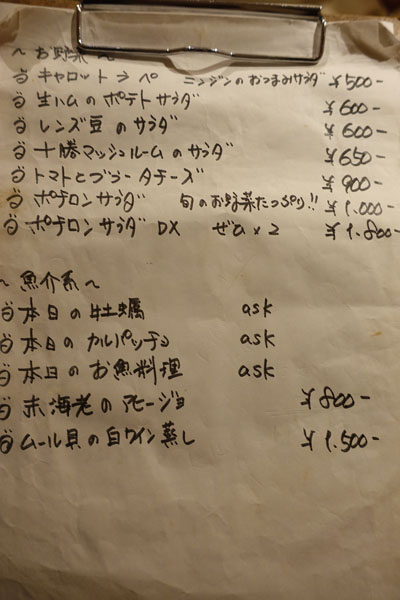 ~ お野菜 ~
キャロットラペ ニンジンのおつまみサラダ ¥500-
生ハムのポテトサラダ ¥600-
レンズ豆のサラダ ¥600-
十勝マッシュルームのサラダ ¥650-
トマトとブラータチーズ ¥900-
ポデロンサラダ 旬のお野菜たっぷり!! ¥1.000-
ポデロンサラダ DX ぜんぶ×2 ¥1.800-
~ 魚介系 ~
本日の牡蠣 ask
本日のカルパッチョ ask
本日のお魚料理 ask
赤海老のアヒージョ ¥800-
ムール貝の白ワイン蒸し ¥1.500-